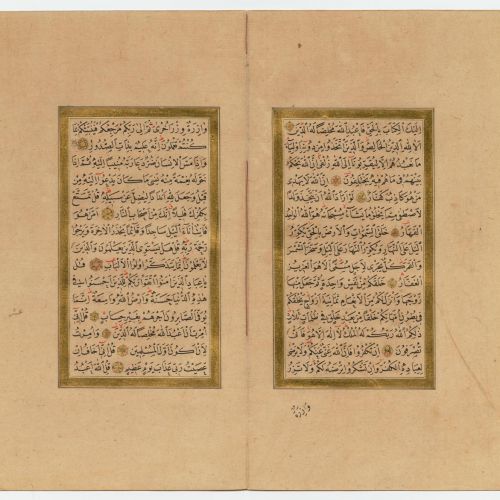 اليك الكتاب بالحق فاعبد الله مخلصا له الدين
الا لله الدين الخالص والذين اتخذوا من دونه اولياء
ما نعبدهم الا ليقربونا الى الله زلفى ان الله يحكم
بينهم في ما هم فيه يختلفون ان الله لا يهدي
من هو كاذب كفار لو اراد الله ان يتخذ ولدا
لاصطفى مما يخلق ما يشاء سبحانه هو الله الواحد
القهار خلق السموات والارض بالحق يكور
اليل على النهار ويكور النهار على اليل وسخر الشمس
والقمر كل يجري لاجل مسمى الا هو العزيز
الغفار خلقكم من نفس واحدة ثم جعل منها
زوجها وانزل لكم من الانعام ثمانية ازواج يخلقكم
في بطون امهاتكم خلقا من بعد خلق في ظلمات ثلاث
ذلكم الله ربكم له الملك لا اله الا هو فانى
تصرفون ان تكفروا فان الله غني عنكم ولا يرضى
لعباده الكفر وان تشكروا يرضه لكم ولا تزر
وازرة
وازرة وزر اخرى ثم الى ربكم مرجعكم فينبئكم بما
كنتم تعملون انه عليم بذات الصدور
واذا مس الانسان ضر دعا ربه منيبا اليه ثم اذا
خوله نعمة منه نسي ما كان يدعوا اليه من
قبل وجعل لله اندادا ليضل عن سبيله قل تمتع
بكفرك قليلا انك من اصحاب النار امن هو
قانت اناء اليل ساجدا وقائما يحذر الاخرة ويرجوا
رحمة ربه قل هل يستوي الذين يعلمون والذين
لا يعلمون انما يتذكر اولوا الالباب قل
يا عباد الذين امنوا اتقوا ربكم للذين احسنوا في
هذه الدنيا حسنة وارض الله واسعة انما
يوفى الصابرون اجرهم بغير حساب قل اني
امرت ان اعبد الله مخلصا له الدين وامرت
لان اكون اول المسلمين قل اني اخاف ان
عصيت ربي عذاب يوم عظيم قل الله اعبد